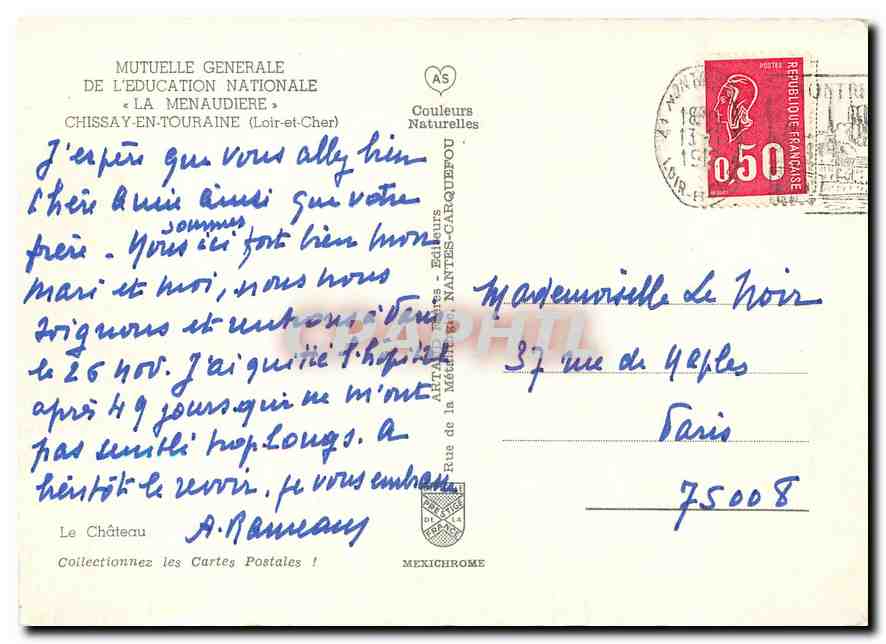 MUTUELLE GENERALE
DE L'EDUCATION NATIONALE
« LA MENAUDIERE »
CHISSAY-EN-TOURAINE (Loir-et-Cher)
J'espère que vous allez bien
Chère Amie ainsi que votre
frère. Nous sommes ici fort bien mon
mari et moi, nous nous
soignons et rentrons à Paris
le 26 nov. J'ai quitté l'hôpital
après 49 jours qui ne m'ont
pas semblé trop longs. A
bientôt le revoir, je vous embrasse
A. Rameau
Le Château
Collectionnez les Cartes Postales !
AS
Couleurs
Naturelles
ARTAUD Frères - Editeurs
Rue de la Métallurgie, NANTES-CARQUEFOU
PRESTIGE
DE LA
FRANCE
MEXICHROME
CPAPHIL
POSTES
REPUBLIQUE FRANÇAISE
0,50
LOIR-E
Mademoiselle Le Noir
37 rue de Naples
Paris
75008